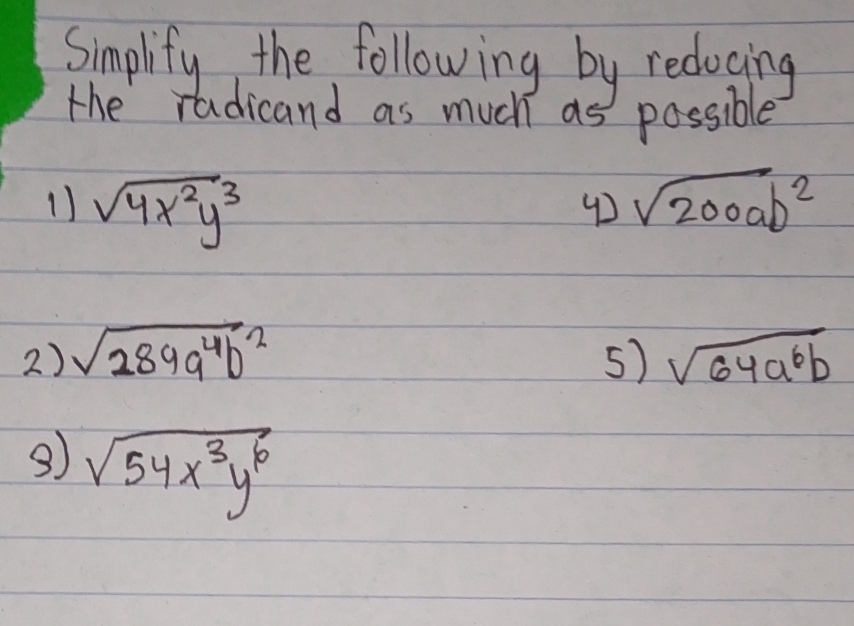 Simplify the following by reducing
the radicand as much as possible
1) √4x²y³
4) √200ab²
2) √289a⁴b²
5) √64a⁶b
3) √54x³y⁶